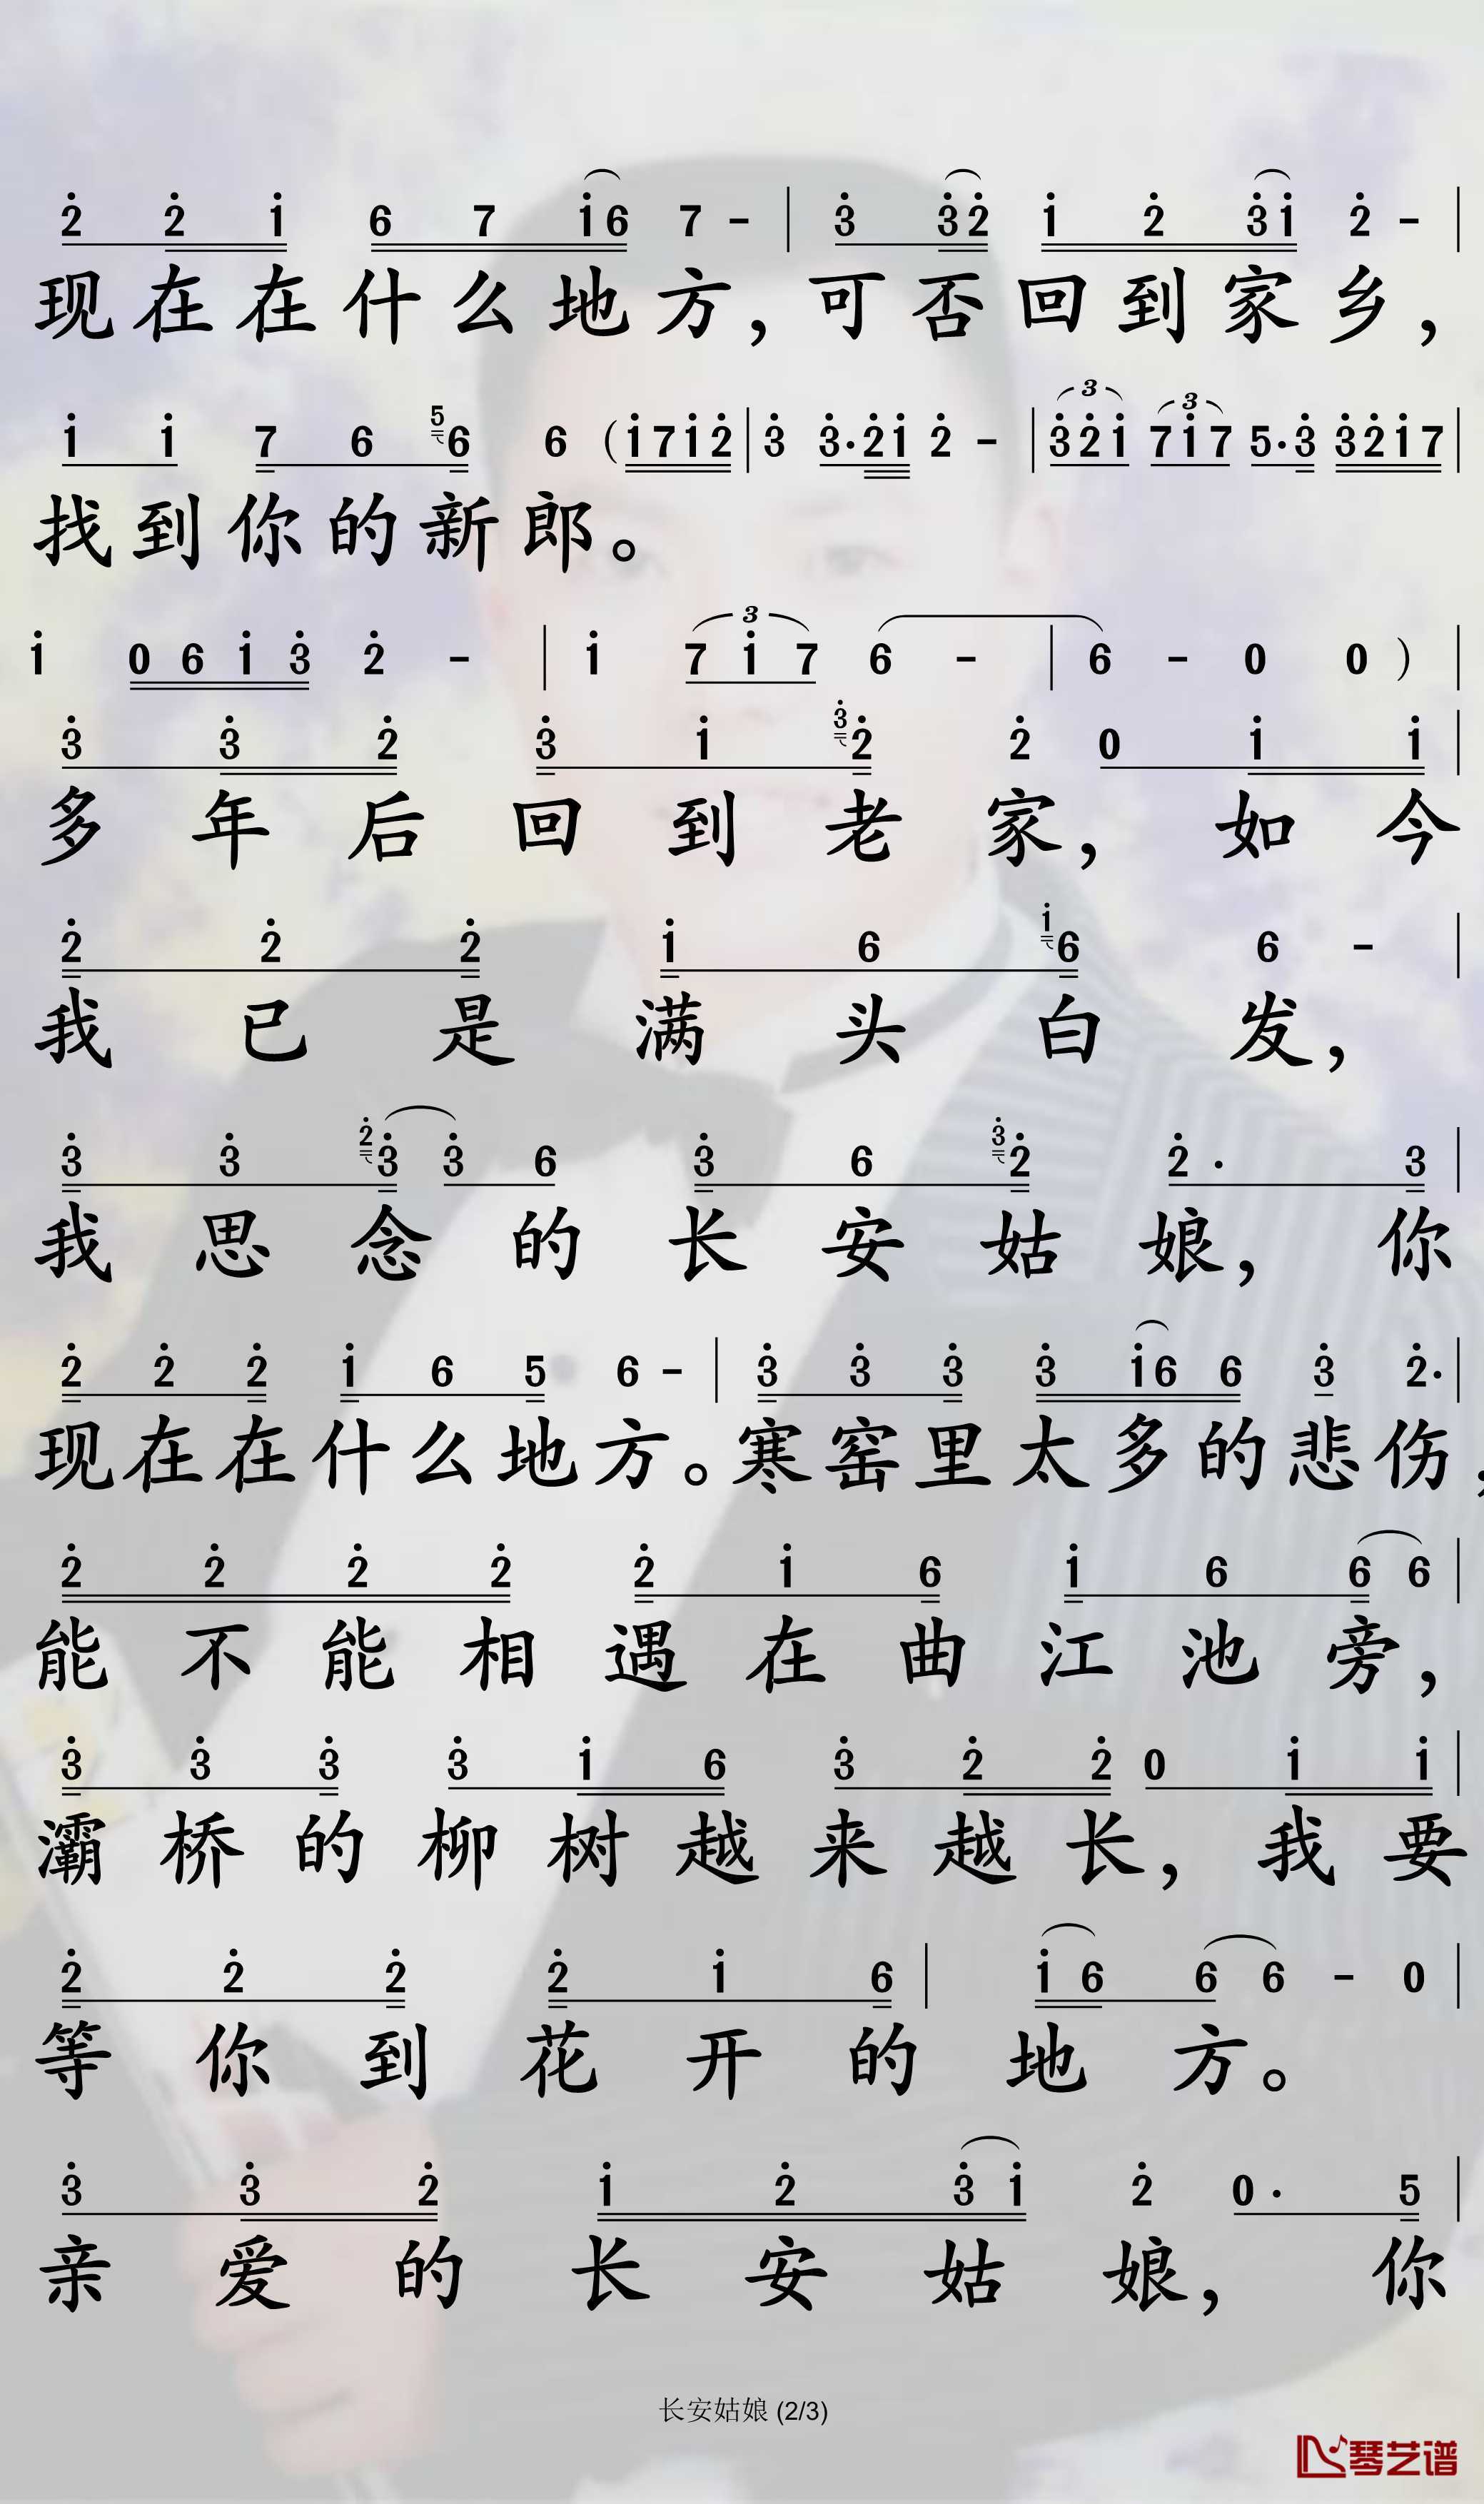 2̇ 2̇ 1̇ 6 7 1̇ 6 7 - | 3̇ 3̇ 2̇ 1̇ 2̇ 3̇ 1̇ 2̇ - |
现在在什么地方，可否回到家乡，
1̇ 1̇ 7 6 5 6 6 （1̇ 7 1̇ 2̇ | 3̇ 3̇· 2̇ 1̇ 2̇ - | 3 3̇ 2̇ 1̇ 3 7 1̇ 7 5· 3̇ 3̇ 2̇ 1̇ 7 |
找到你的新郎。
1̇ 0 6 1̇ 3̇ 2̇ - | 1̇ 3 7 1̇ 7 6 - | 6 - 0 0 ） |
3̇ 3̇ 2̇ 3̇ 1̇ 3̇ 2̇ 2̇ 0 1̇ 1̇ |
多年后回到老家，如今
2̇ 2̇ 2̇ 1̇ 6 1̇ 6 6 - |
我已是满头白发，
3̇ 3̇ 2̇ 3̇ 3̇ 6 3̇ 6 3̇ 2̇ 2̇· 3̇ |
我思念的长安姑娘，你
2̇ 2̇ 2̇ 1̇ 6 5 6 - | 3̇ 3̇ 3̇ 3̇ 1̇ 6 6 3̇ 2̇· |
现在在什么地方。寒窑里太多的悲伤，
2̇ 2̇ 2̇ 2̇ 2̇ 1̇ 6 1̇ 6 6 6 |
能不能相遇在曲江池旁，
3̇ 3̇ 3̇ 3̇ 1̇ 6 3̇ 2̇ 2̇ 0 1̇ 1̇ |
灞桥的柳树越来越长，我要
2̇ 2̇ 2̇ 2̇ 1̇ 6 | 1̇ 6 6 6 - 0 |
等你到花开的地方。
3̇ 3̇ 2̇ 1̇ 2̇ 3̇ 1̇ 2̇ 0· 5 |
亲爱的长安姑娘，你
长安姑娘 (2/3)
琴艺谱